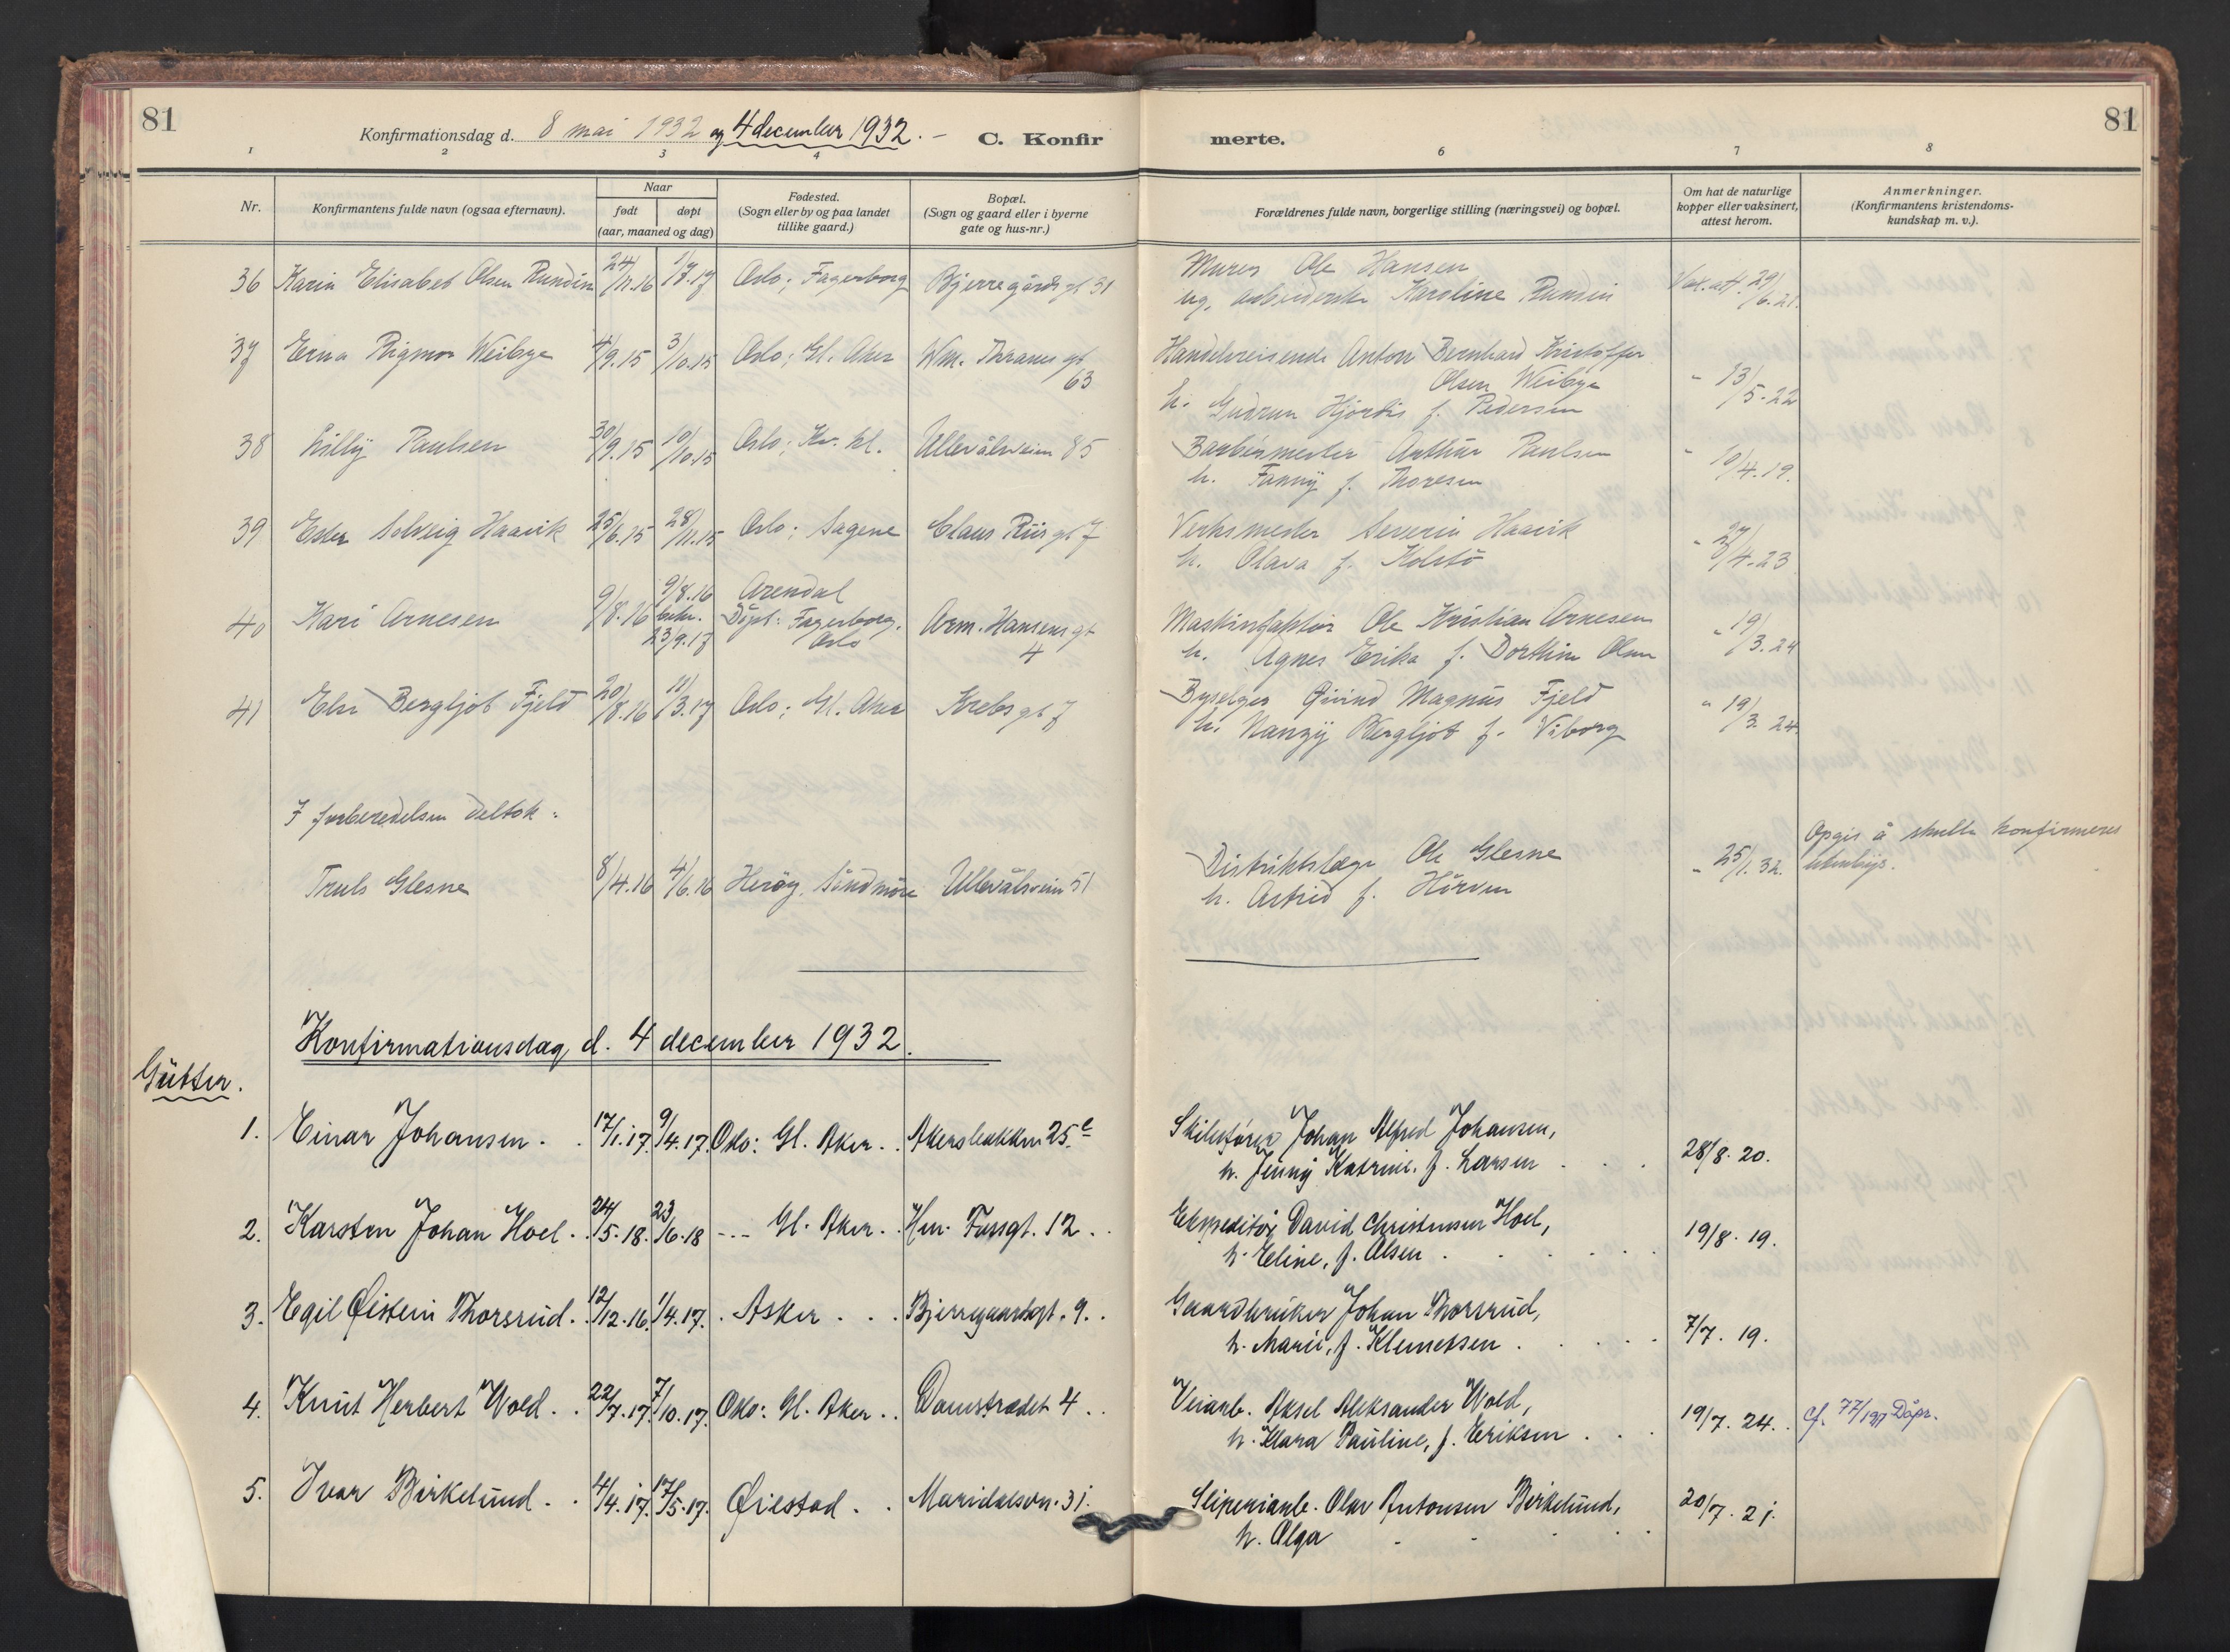 81
Konfirmationsdag d. 8 mai 1932 og 4 december 1932. –
C. Konfir
merte.
81
1 2 3 4 6 7 8
Nr.
Konfirmantens fulde navn (ogsaa efternavn).
Naar
født
døpt
(aar, maaned og dag)
Fødested.
(Sogn eller by og paa landet
tillike gaard.)
Bopæl.
(Sogn og gaard eller i byerne
gate og hus-nr.)
Forældrenes fulde navn, borgerlige stilling (næringsvei) og bopæl.
Om hat de naturlige
kopper eller vaksinert,
attest herom.
Anmerkninger.
(Konfirmantens kristendoms-
kundskap m. v.).
36 Karin Elisabet Olsen Rundin 24/11.16 1/7.17 Oslo; Fagerborg Bjerregårds gt 31 Murer Ole Hansen Vak.att. 29/6.21.
ug. arbeiderske Karoline Rundin
37 Erna Rigmor Weibye 4/9.15 3/10.15 Oslo; Gl. Aker Wm. Thranes gt 63 Handelsreisende Anton Bernhard Kristoffer
Olsen Weibye " 13/5.22
h. Gudrun Hjørdis f. Pedersen
38 Lilly Paulsen 30/9.15 10/10.15 Oslo; Kv. kl. Ullevålsveien 85 Barbermester Arthur Paulsen " 10/4.19.
h. Fanny f. Thoresen
39 Ester Solveig Haavik 25/6.15 28/11.15 Oslo; Sagene Claus Riis gt 7 Verksmester Severin Haavik
h. Olava f. Kolstø " 27/4.23
40 Kari Arnesen 9/8.16 9/8.16 bekr. 23/9.17 Arendal
Døpt: Fagerborg. Oslo Arm. Hansens gt 4 Maskinfaktor Ole Kristian Arnesen " 19/3.24
h. Agnes Erika f. Dorthin Olsen
41 Elsi Bergljot Fjeld 20/8.16 11/3.17 Oslo; Gl. Aker Krebs gt 7 Byselger Øivind Magnus Fjeld " 19/3.24
h. Nanzy Bergljot f. Viborg
I forberedelsen deltok:
Truls Glesne 8/4.16 4/6.16 Herøy, Sündmøre Ullevålsveien 51 Distriktslæge Ole Glesne " 25/1.32. Opgis å skulle konfirmeres
h. Astrid f. Hörven
Konfirmationsdag d. 4 december 1932.
Gutter.
1. Einar Johansen. 17/1.17. 9/4.17. Oslo: Gl. Aker. Akersbakken 25 c Skiltfører Johan Alfred Johansen,
h. Jenny Katrine, f. Larsen 28/8.20.
2. Karsten Johan Hoel. 24/5.18. 23/6.18 --- Gl. Aker. Hm. Fossgt. 12. Ekspeditør David Christensen Hoel,
h. Eline, f. Olsen. 19/8.19.
3. Egil Øistein Thorsrud. 12/12.16. 1/4.17. Asker. Bjerregaardsgt. 9. Gaardbruker Johan Thorsrud,
h. Marie, f. Klemetsen. 7/7.19.
4. Knut Herbert Wold. 22/7.17. 7/10.17. Oslo: Gl. Aker. Damstrædet 4. Veiarb. Aksel Aleksander Wold,
h. Klara Pauline, f. Eriksen. 19/7.24. Cf. 77/1917 Döpr.
5. Ivar Birkelund. 4/4.17. 17/5.17. Øiestad. Maridalsvn. 31. Sliperiarb. Olav Antonsen Birkelund,
h. Olga 20/7.21.